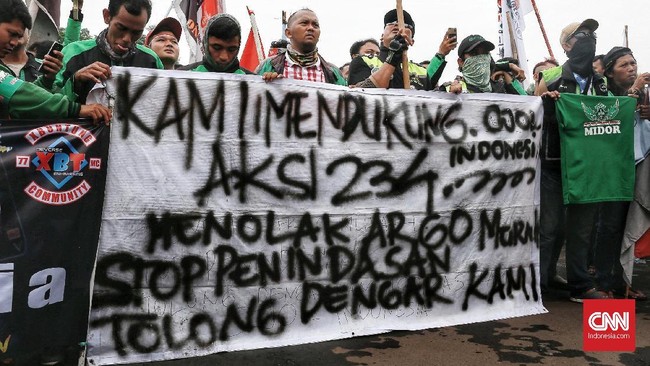 KAMI MENDUKUNG. OJOL
INDONESI
AKSI 234.
MENOLAK AR GO Murah
STOP PENINDASAN
TOLONG DENGAR KAMI
77
XBT
MC
COMMUNITY
ia
MIDOR
CNN
Indonesia.com